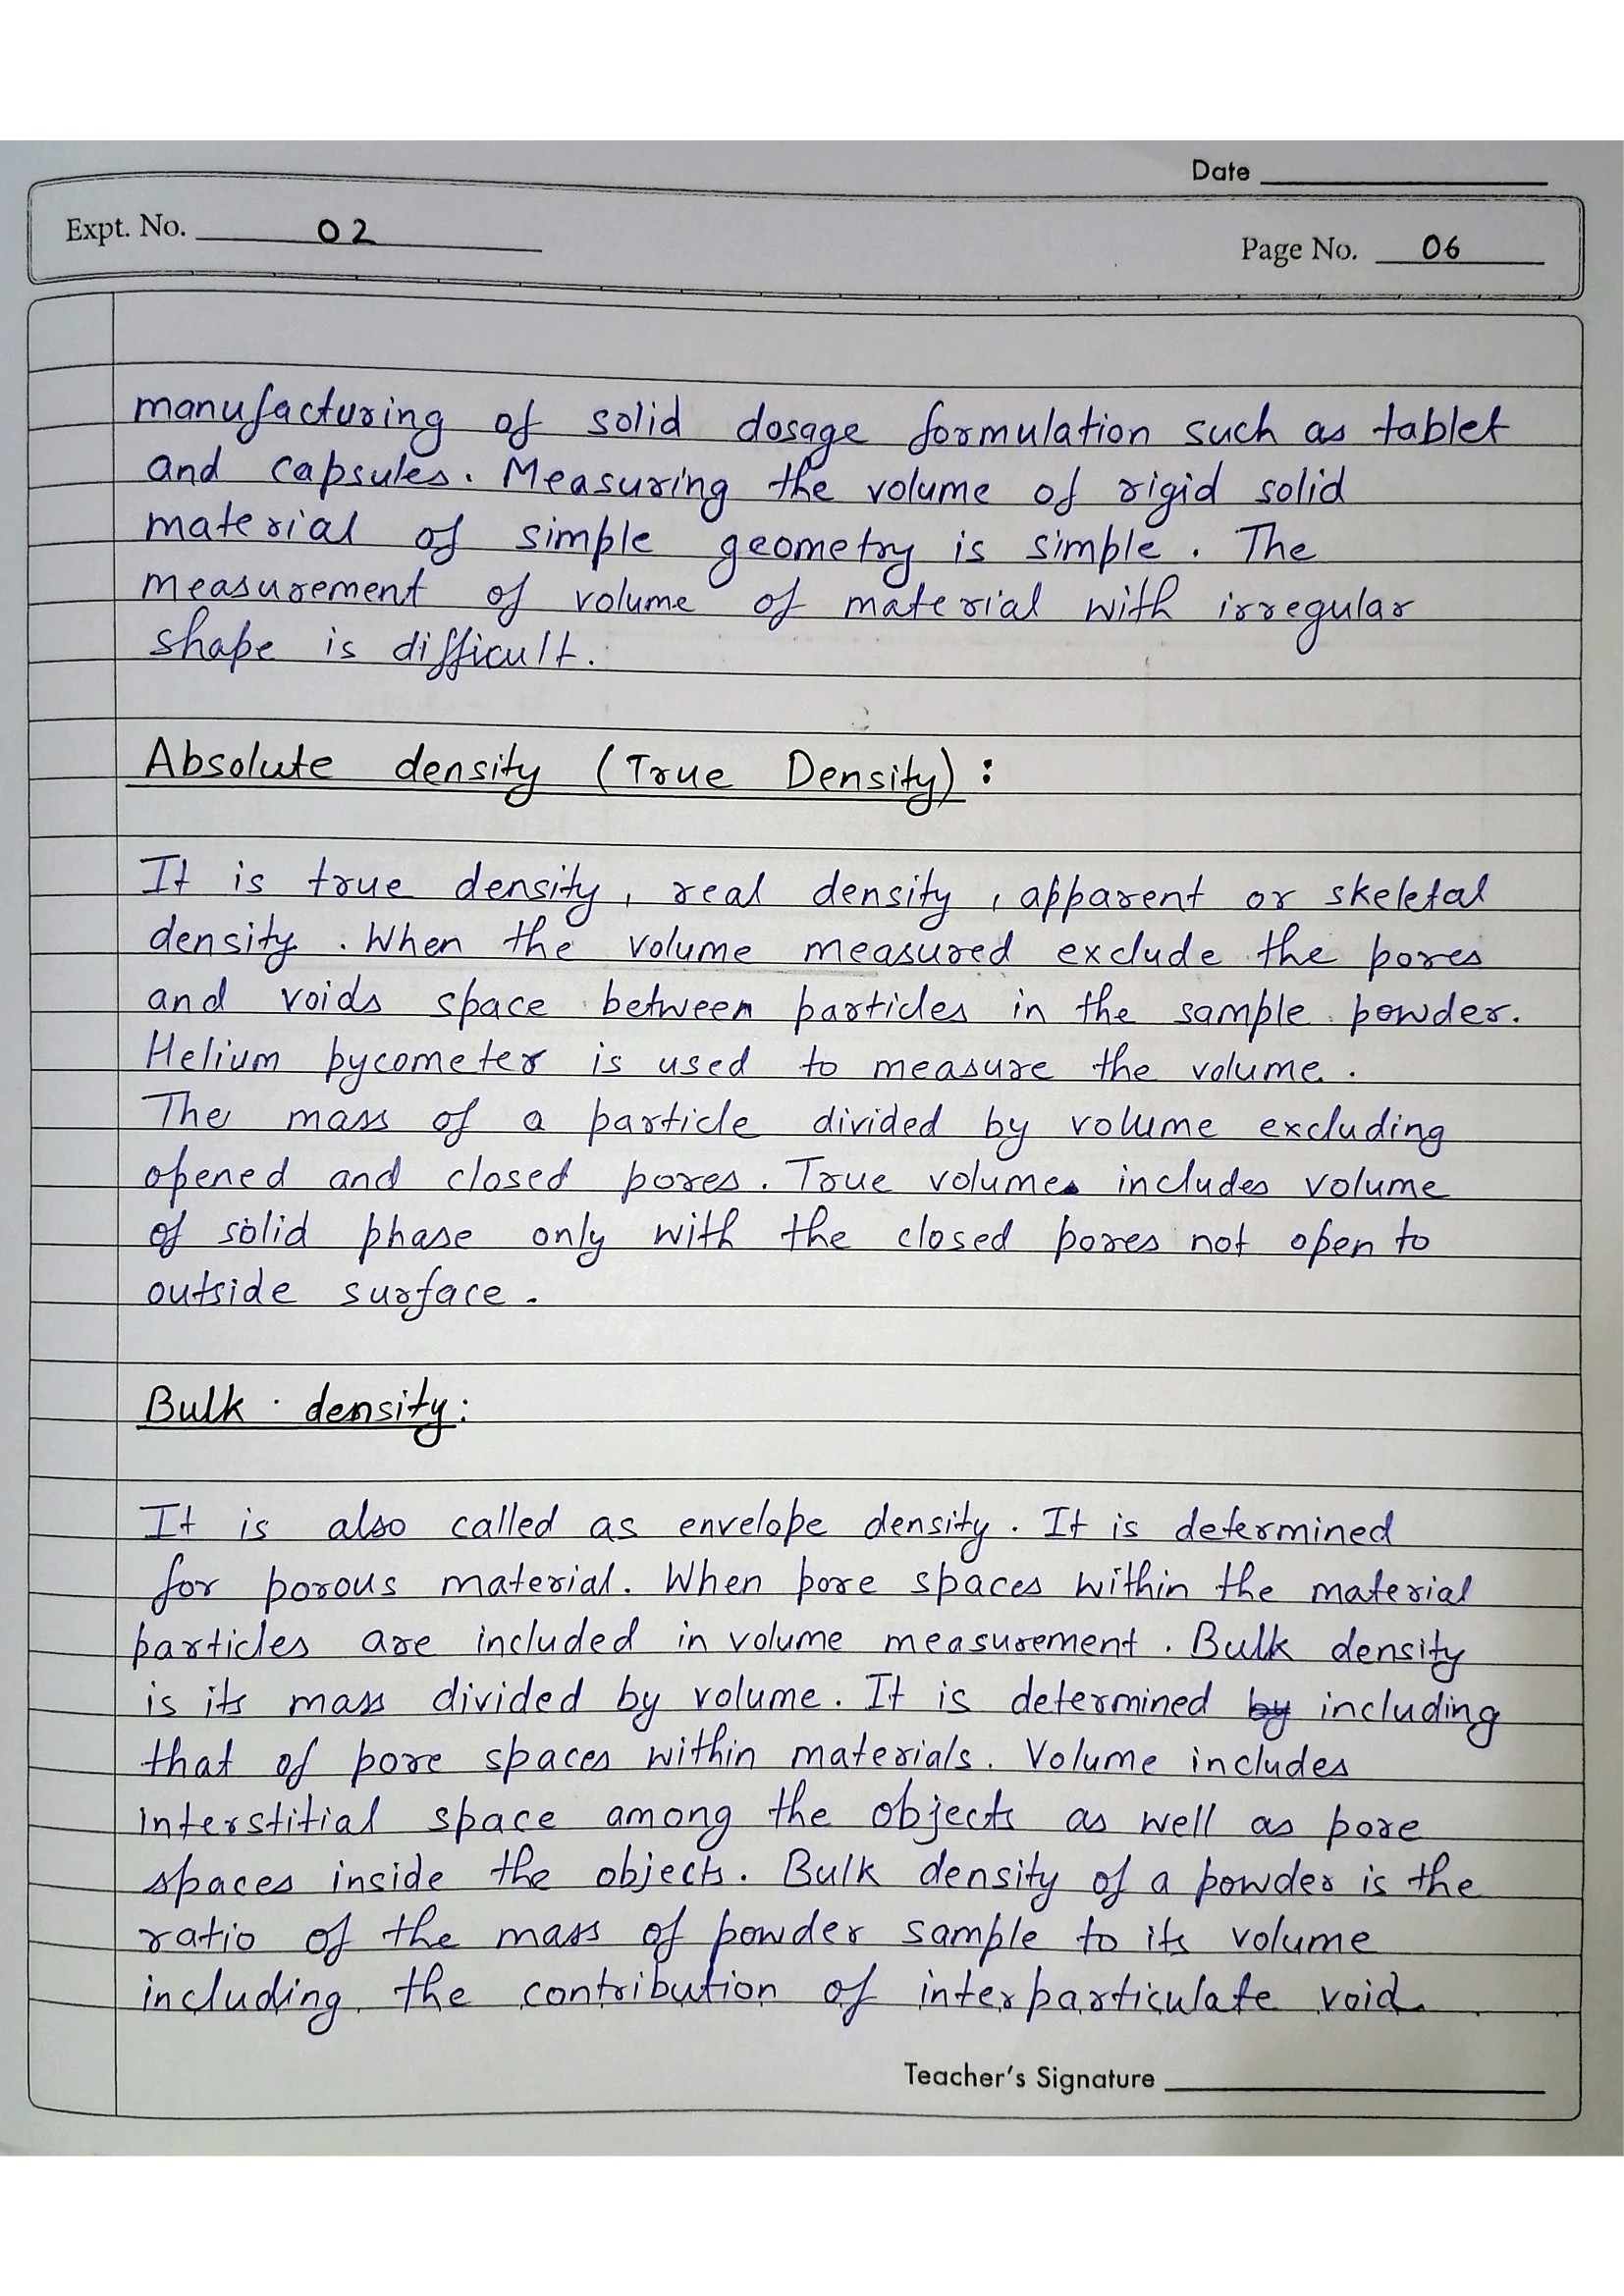 Date
Expt. No. 02
Page No. 06
manufacturing of solid dosage formulation such as tablet
and capsules. Measuring the volume of rigid solid
material of simple geometry is simple. The
measurement of volume of material with irregular
shape is difficult.
Absolute density (True Density):
It is true density, real density, apparent or skeletal
density. When the volume measured exclude the pores
and voids space between particles in the sample powder.
Helium pycometer is used to measure the volume.
The mass of a particle divided by volume excluding
opened and closed pores. True volumes includes volume
of solid phase only with the closed pores not open to
outside surface.
Bulk density:
It is also called as envelope density. It is determined
for porous material. When pore spaces within the material
particles are included in volume measurement. Bulk density
is its mass divided by volume. It is determined by including
that of pore spaces within materials. Volume includes
interstitial space among the objects as well as pore
spaces inside the objects. Bulk density of a powder is the
ratio of the mass of powder sample to its volume
including the contribution of interparticulate void.
Teacher's Signature